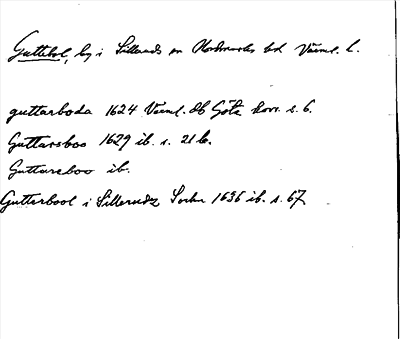 Guttebol, by i Silleruds sn Nordmarks hd Värml. l.
guttarboda 1624 Värml. db Göta hovr. s. 6.
Guttarsboo 1629 ib. s. 21 b.
Guttareboo ib.
Gutterbool i Sillerudz Sochn 1636 ib. s. 67